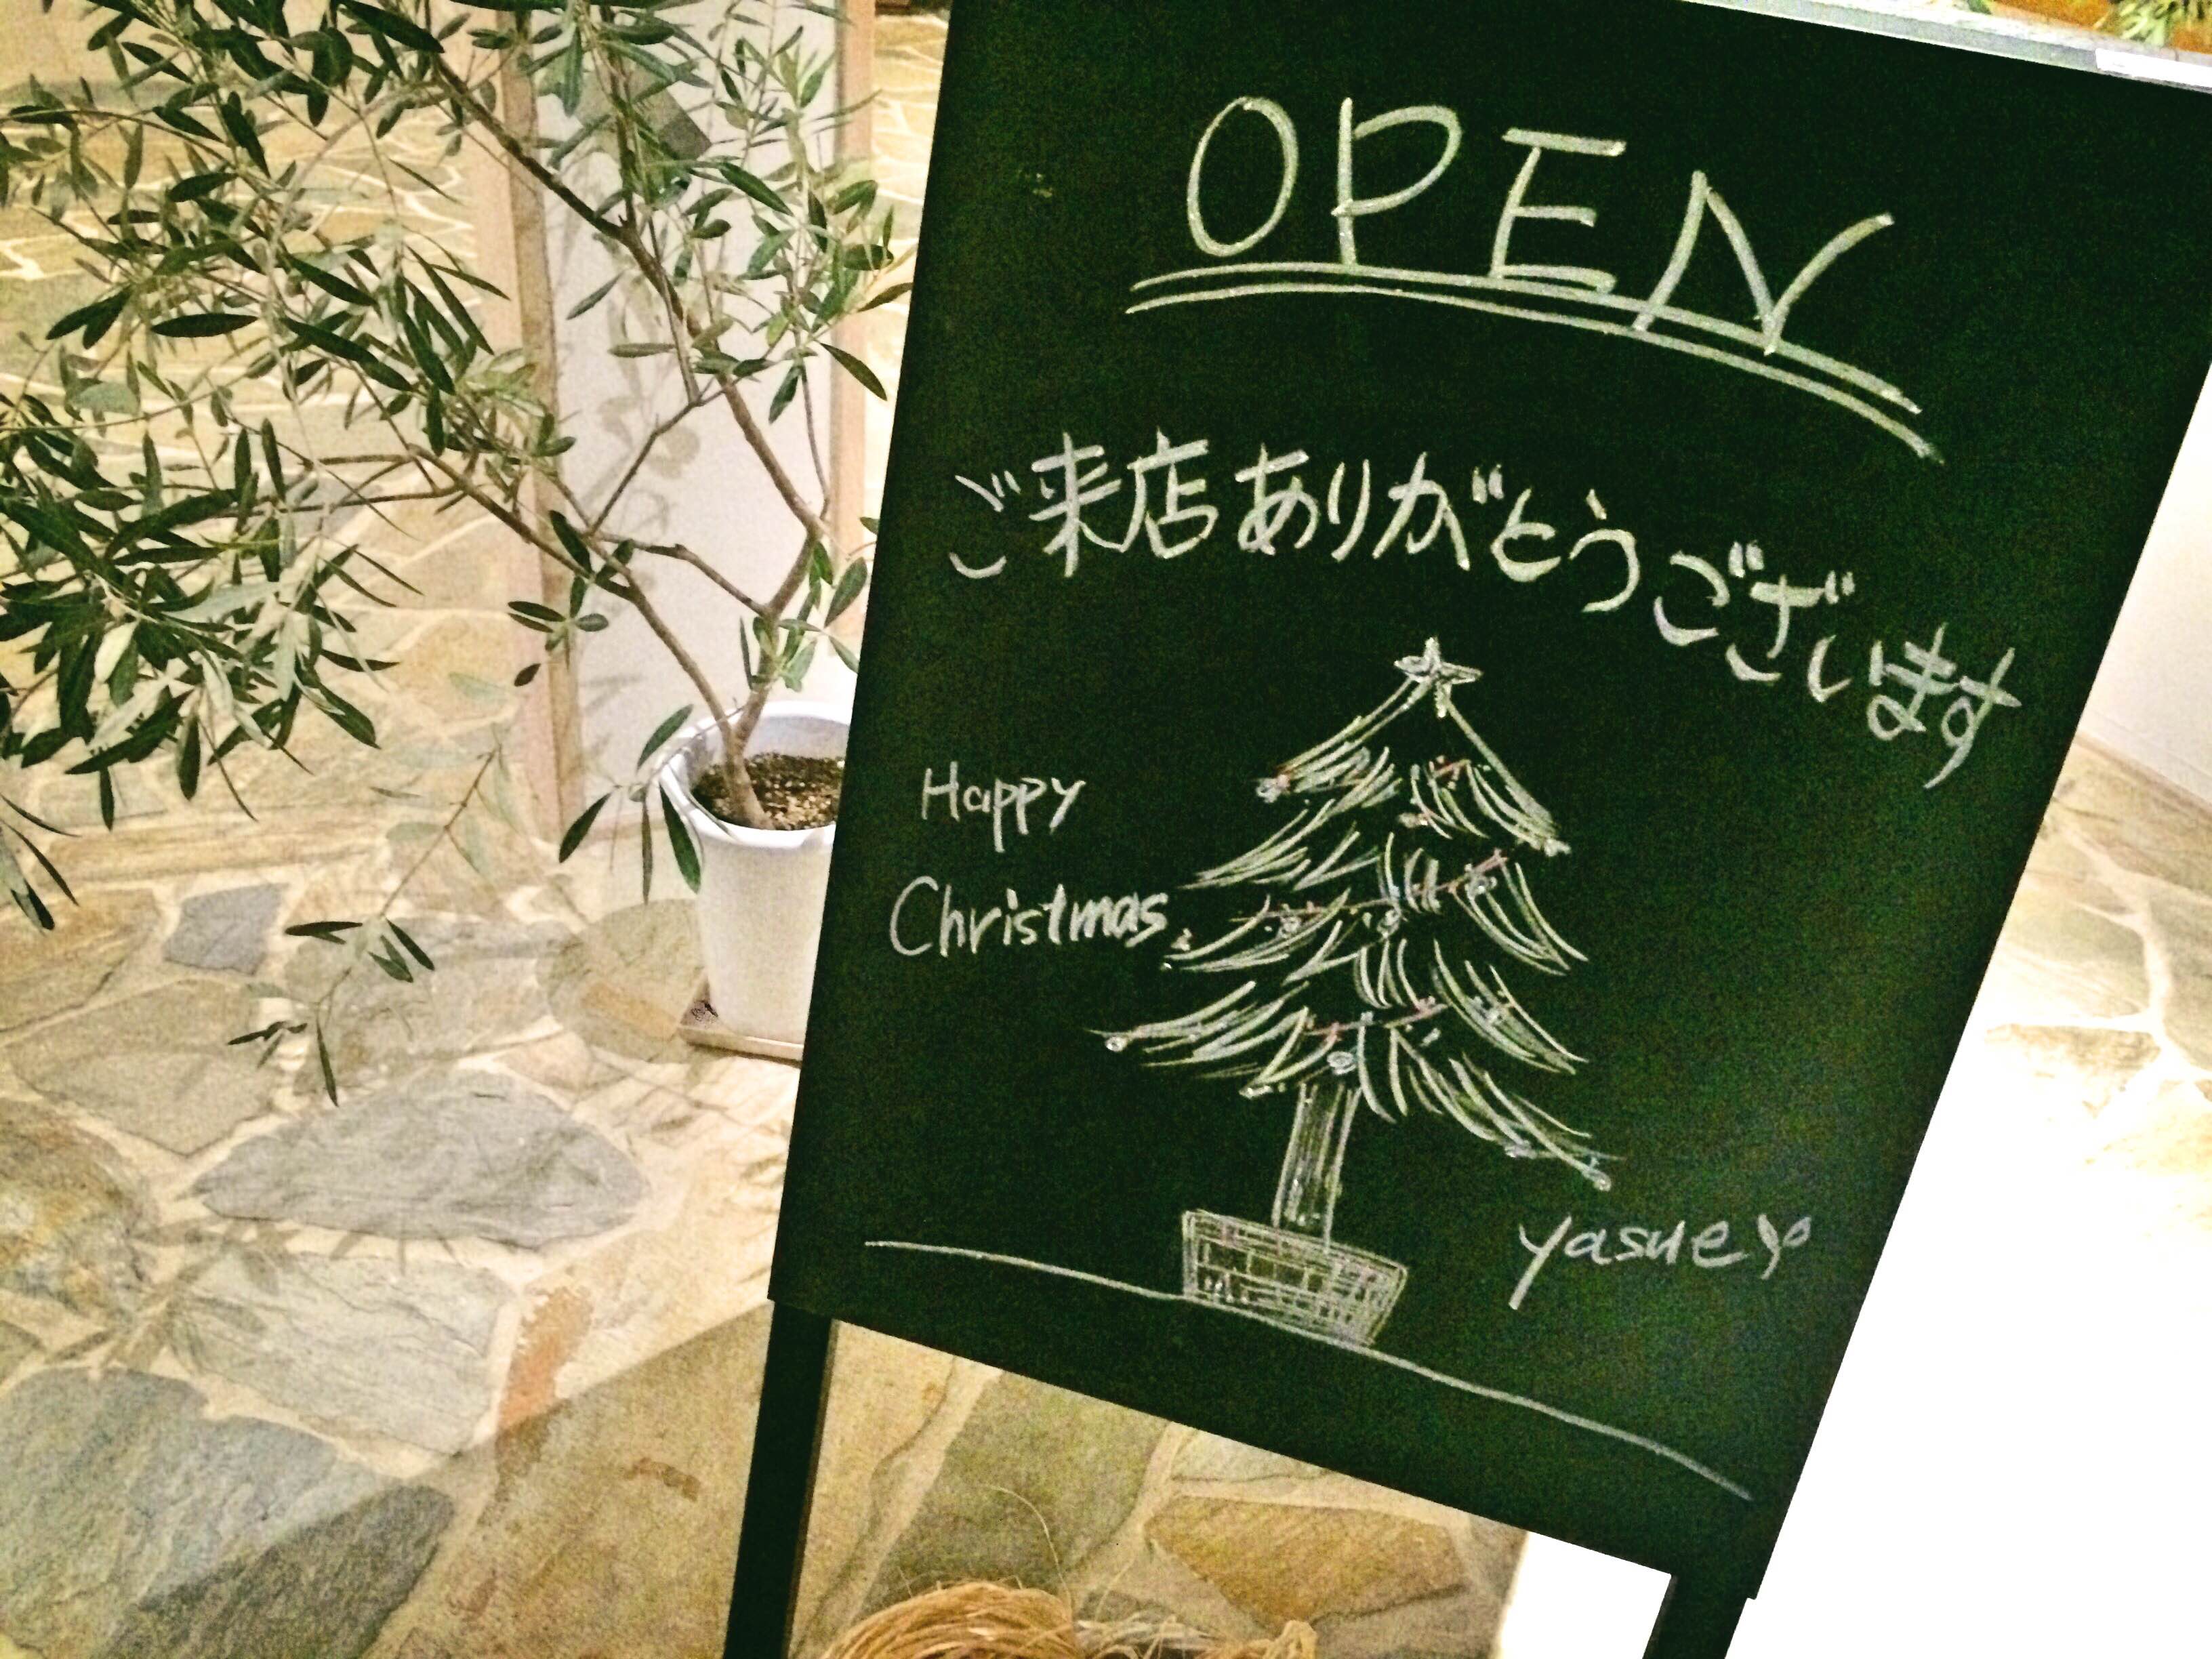 OPEN
ご来店ありがとうございます
Happy
Christmas
yasue